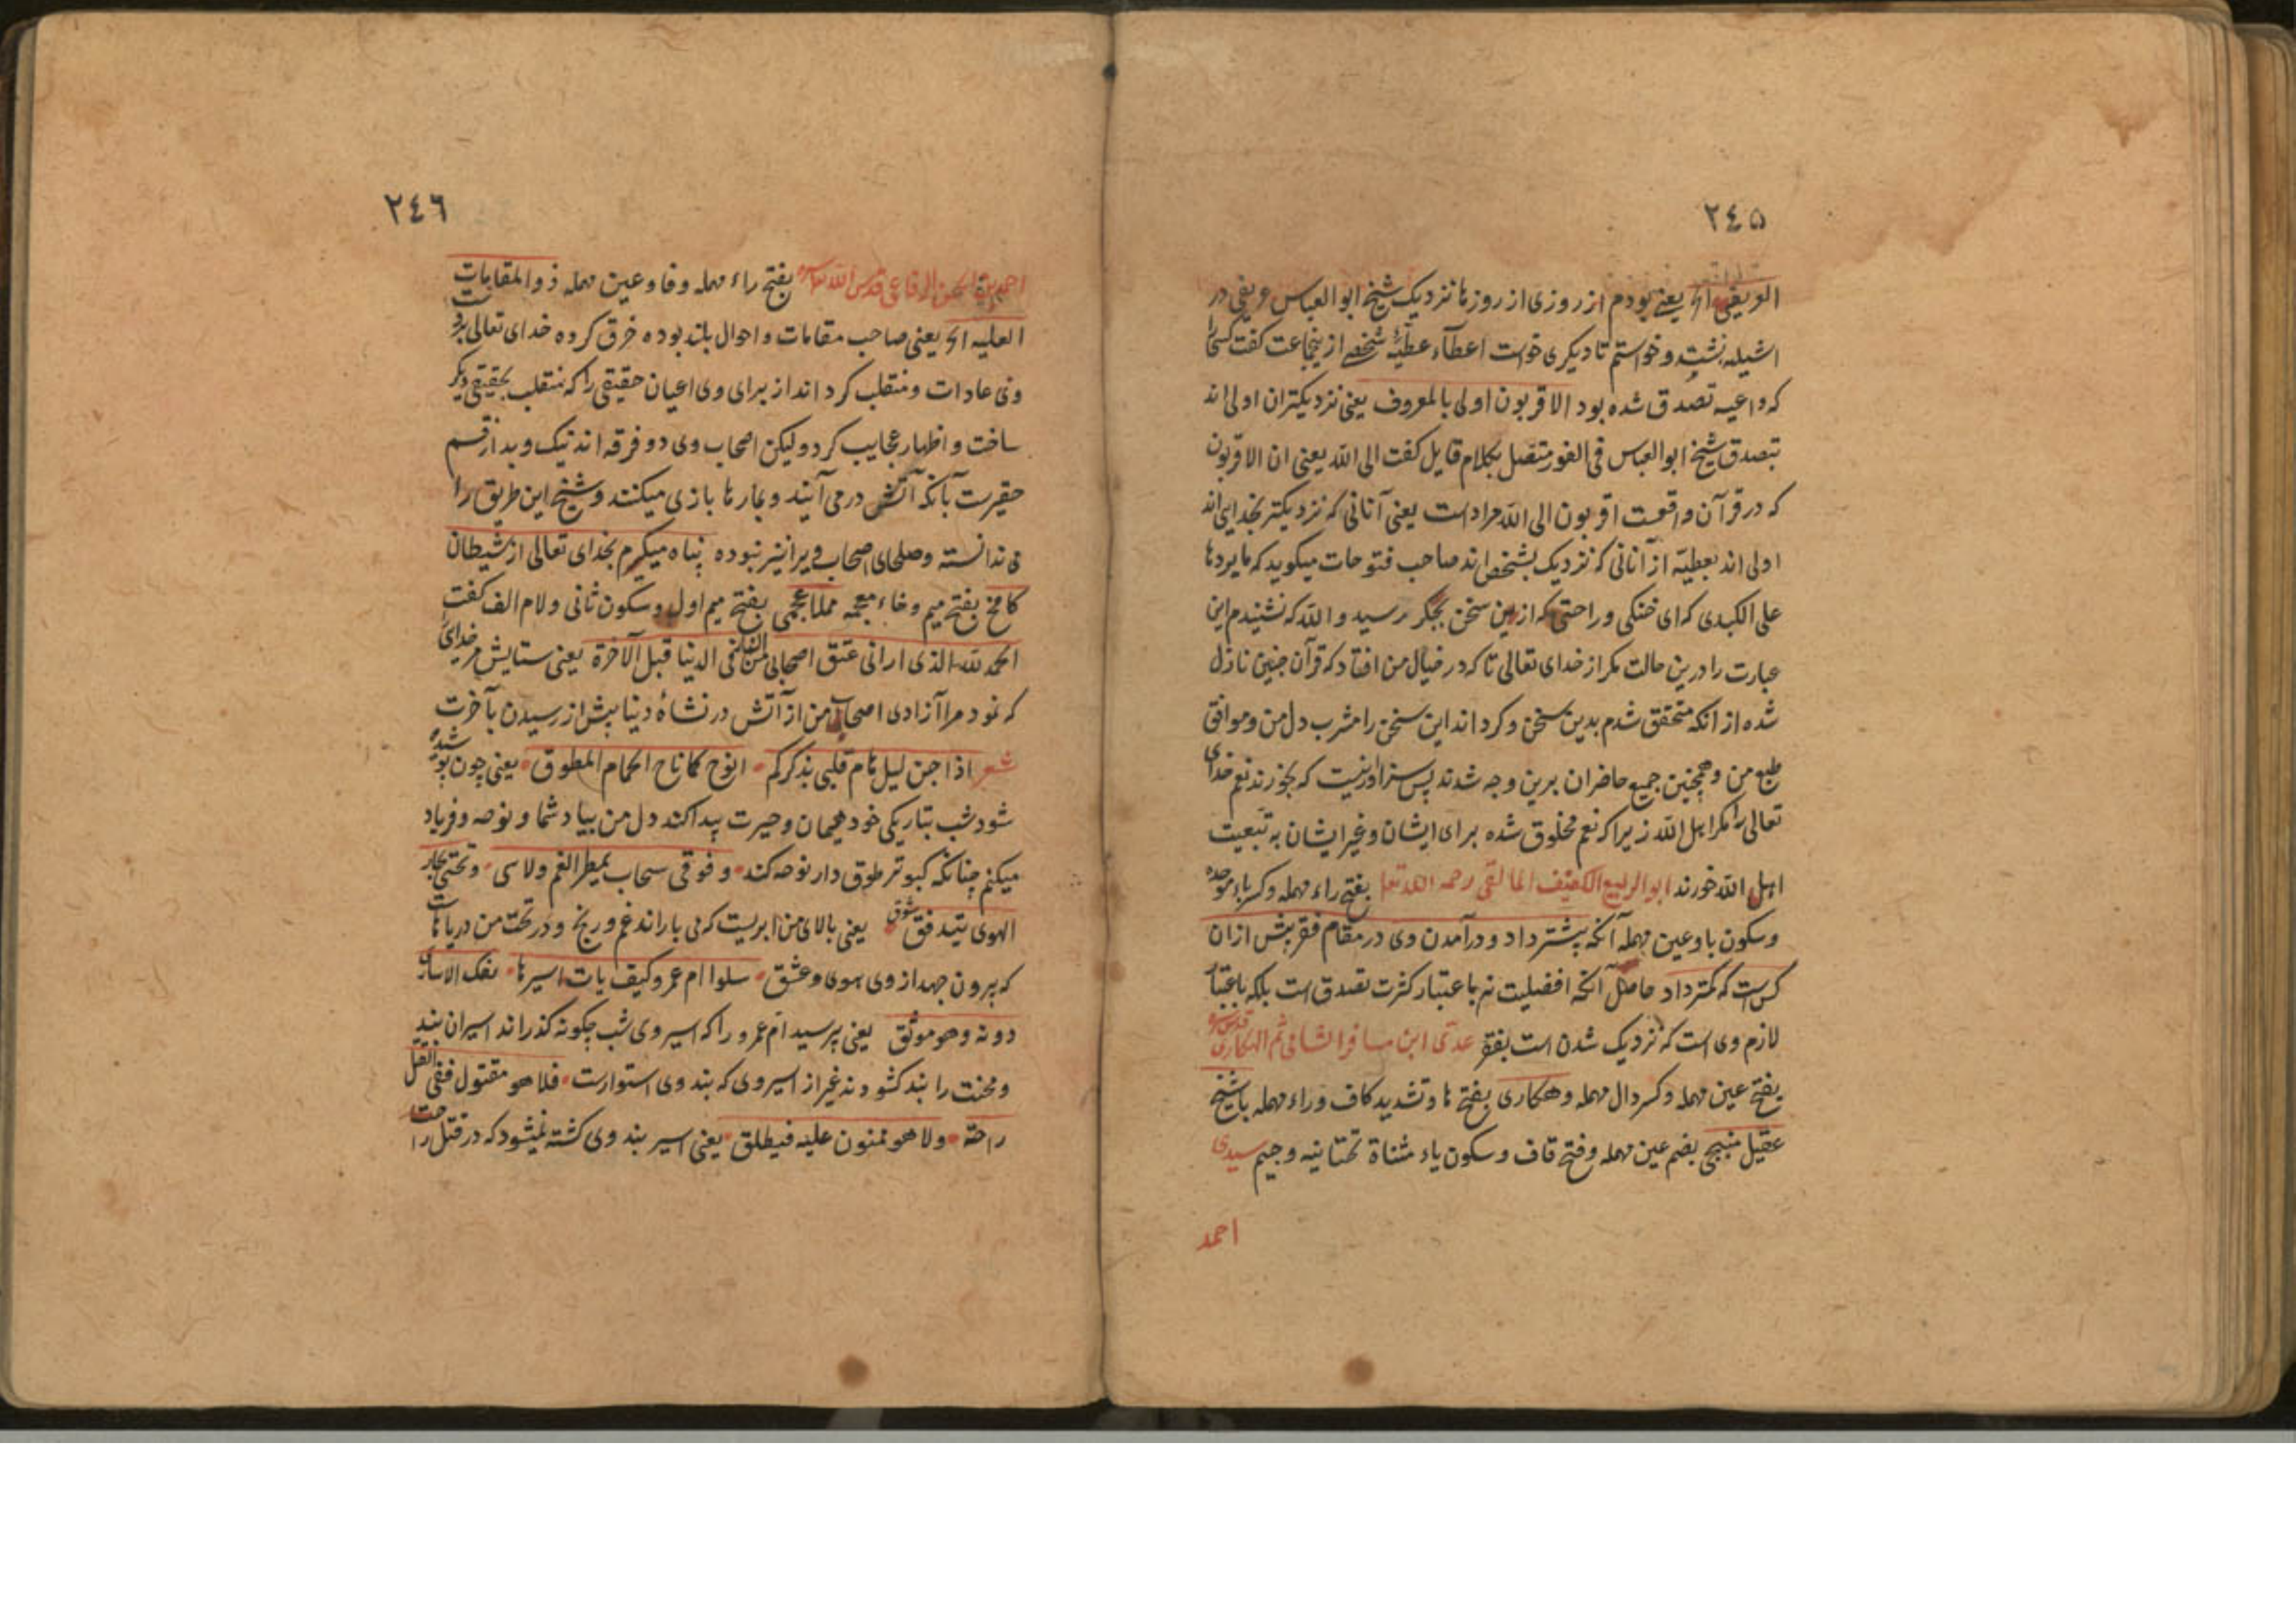 ٢٤٥
العریفی الخ یعنی بودم از روزی از روزها نزدیک شیخ ابو العباس عریفی در
اشبیله نشسته و خواستم تا دیکری خواست اعطآء عطیّهٔ شخصی از ینجماعت کفت کسی را
که داعیه تصدق شده بود الاقربون اولی بالمعروف یعنی نزدیکتران اولی اند
بتصدق شیخ ابو العباس فی الفور متصل بکلام قایل کفت الی الله یعنی ان الاقربون
که در قرآن واقعست اقربون الی الله مراد است یعنی آنانی که نزدیکتر بخدای اند
اولی اند بعطیّه از آنانی که نزدیک بشخص اند صاحب فتوحات میکوید که ما بردها
علی الکبدی که ای خنکی و راحتی که ازین سخن بجکر رسید والله که نشنیدم این
عبارت را درین حالت مکر از خدای تعالی تا که در خیال من افتاد که قرآن چنین نازل
شده از انکه متحقق شدم بدین سخن و کرداند این سخن را مشرب دل من و موافق
طبع من و همچنین جمیع حاضران برین وجه شدند پس سزاوار نیست که بخورند نعم خدای
تعالی را مکر اهل الله زیرا که نعم مخلوق شده برای ایشان و غیر ایشان به تبعیت
اهل الله خورند ابو الربیع الکفیف المالقی رحمه الله تعا بفتح راء مهمله و کسر باء موحده
و سکون یا و عین مهمله آنکه پیشتر داد و درآمدن وی در مقام فقر بیش ازان
کس است که کمتر داد حاصل آنکه افضلیت نه باعتبار کثرت تصدق است بلکه باعتبار
لازم وی است که نزدیک شدن است بفقر عدی ابن مسافر الشامی ثم الهکاری قدس سره
بفتح عین مهمله و کسر دال مهمله و هکاری بفتح ها و تشدید کاف و راء مهمله با شیخ
عقیل منبجی بضم عین مهمله و فتح قاف و سکون یاء مثناة تحتانیه و جیم سیدی
احمد
٢٤٦
احمد بن ابی الحسن الرفاعی قدس الله تعا سره بفتح راء مهمله و فا و عین مهمله ذو المقامات
العلیه الخ یعنی صاحب مقامات و احوال بلند بوده خرق کرده خدای تعالی بر دست
وی عادات و منقلب کرداند از برای وی اعیان حقیقی را که منقلب بحقیقی دیکر
ساخت و اظهار عجایب کرد و لیکن اصحاب وی دو فرقه اند نیک و بد از قسم
حقیرست بآنکه آتش درمی آیند و بمارها بازی میکنند و شیخ این طریق را
می ندانسته و صلحای اصحاب ویرا نیز نبوده پناه میکیرم بخدای تعالی از شیطان
کامخ بفتح میم و خاء معجمه مملا عجمی بفتح میم اول و سکون ثانی و لام الف کفت
الحمد لله الذی ارانی عتق اصحابی من النار فی الدنیا قبل الآخرة یعنی ستایش مر خدای
که نمود مرا آزادی اصحاب من از آتش در نشاهٔ دنیا پیش از رسیدن بآخرت
شعر اذا جن لیل هام قلبی بذکرکم انوح کما ناح الحمام المطوق یعنی چون پوشیده
شود شب بتاریکی خود هیمان و حیرت پیدا کند دل من بیاد شما و نوحه و فریاد
میکنم چنانکه کبوتر طوق دار نوحه کند و فوقی سحاب یمطر الغم و لاسی و تحتی بحار
الهوی تتدفق شوق یعنی بالای من ابریست که می باراند غم و رنج و در تحت من دریاهاست
که بیرون جهد از وی هوی و عشق سلوا ام عمرو کیف بات اسیرها تفک الاساری
دونه و هو موثق یعنی پرسید ام عمرو را که اسیر وی شب چکونه کذراند اسیران بند
و محنت را بند کشودند غیر از اسیر وی که بند وی استوارست فلا هو مقتول ففی القتل
راحة و لا هو ممنون علیه فیطلق یعنی اسیر بند وی کشته نمیشود که در قتل راحت